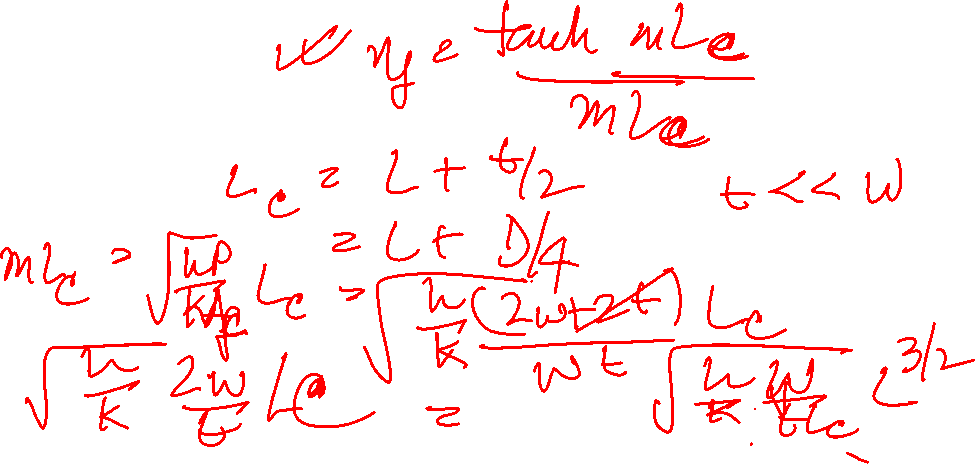 η_f = tanh mL_c / mL_c
L_c = L + t/2   t << w
= L + D/4
mL_c = √(hP / kA_c) L_c = √(h/k (2w+2t) / wt) L_c
√(h/k 2w/t) L_c = √(h/k · w/tL_c) L^{3/2}